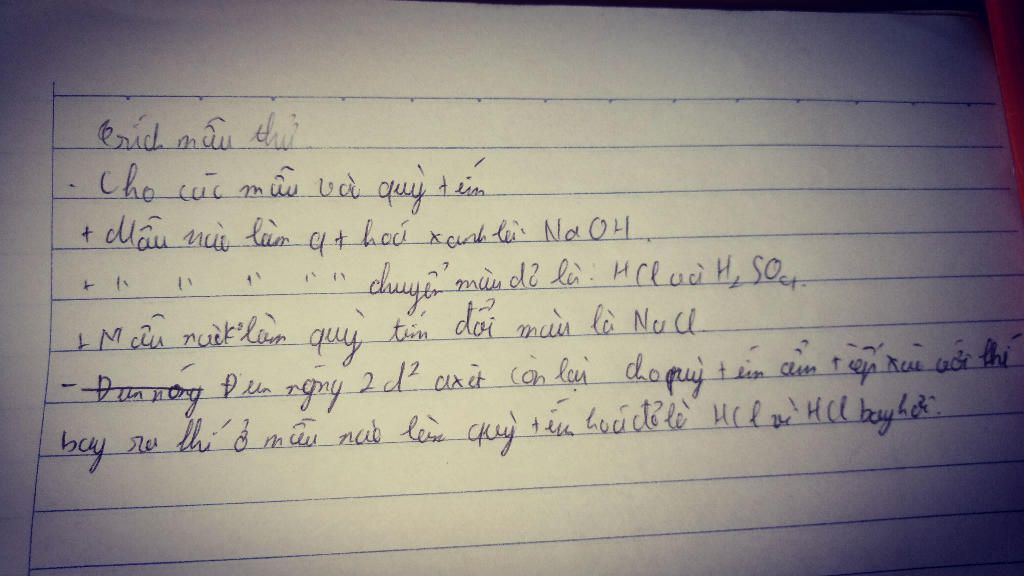 Trích mẫu thử
- Cho các mẫu vào quỳ tím
+ Mẫu nào làm q t hoá xanh là: NaOH.
+ " " " " " chuyển màu đỏ là: HCl và H₂SO₄.
+ Mẫu nào k° làm quỳ tím đổi màu là NaCl.
- Đun nóng 2 d² axit còn lại cho quỳ tím ẩm tiếp xúc với khí
bay ra khí ở mẫu nào làm quỳ tím hoá đỏ là HCl vì HCl bay hơi.